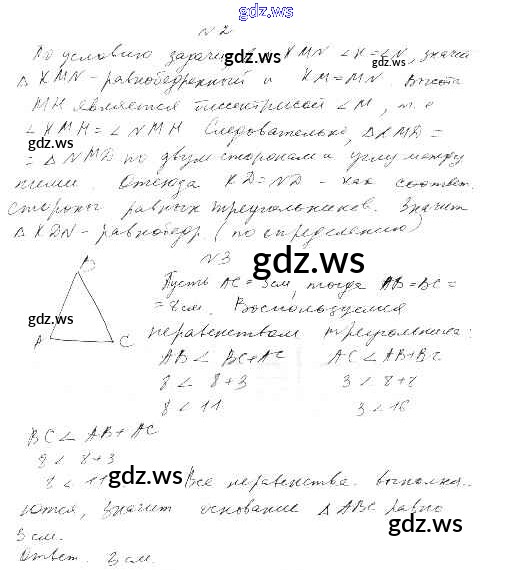 gdz.ws
№2
По условию задачи в △ KMN ∠K=∠N, значит
△ KMN - равнобедренный и KM=MN. Высота
MH является биссектрисой ∠M, т.е
∠KMH=∠NMH Следовательно, △KMD=
=△NMD по двум сторонам и углу между
ними. Отсюда KD=ND - как соответ.
стороны равных треугольников. Значит
△KDN - равнобедр (по определению)
№3
gdz.ws
gdz.ws
gdz.ws
B
A
C
Пусть AC=3см, тогда AB=BC=
=8см. Воспользуемся
неравенством треугольника:
AB < BC+AC AC < AB+BC
8 < 8+3 3 < 8+8
8 < 11 3 < 16
gdz.ws
BC < AB+AC
8 < 8+3
8 < 11 Все неравенства выполня
gdz.ws
ются, значит основание △ABC равно
3 см.
gdz.ws
Ответ. 3 см.
gdz.ws